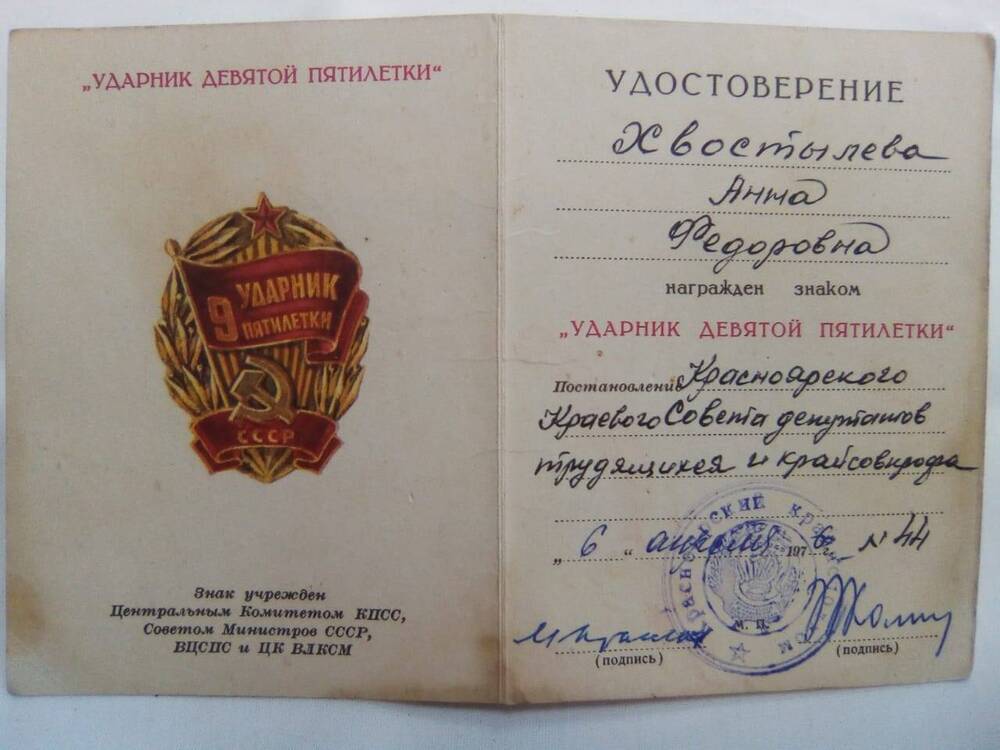 „УДАРНИК ДЕВЯТОЙ ПЯТИЛЕТКИ“
9 УДАРНИК
ПЯТИЛЕТКИ
СССР
Знак учрежден
Центральным Комитетом КПСС,
Советом Министров СССР,
ВЦСПС и ЦК ВЛКСМ
УДОСТОВЕРЕНИЕ
Хвостылева
Анна
Федоровна
награжден знаком
„УДАРНИК ДЕВЯТОЙ ПЯТИЛЕТКИ“
Постановление Красноярского
Краевого Совета депутатов
трудящихся и крайсовпрофа
„6“ апреля 1976 г. N 44
Красноярский
М. П.
(подпись) (подпись)